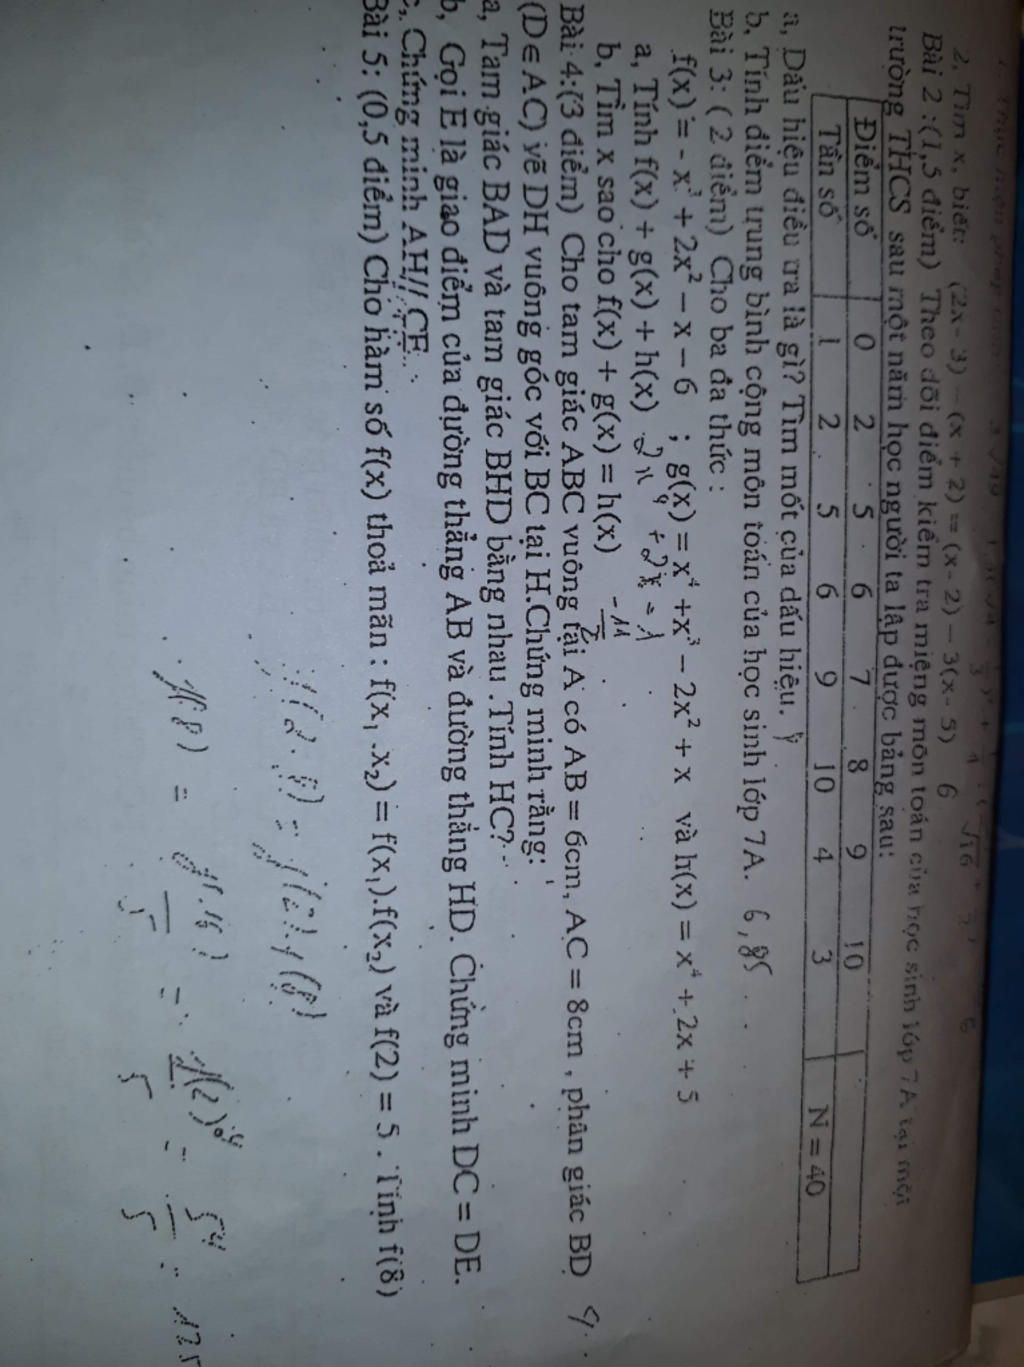 2, Tìm x, biết: (2x - 3) - (x + 2) = (x - 2) - 3(x - 5) 6
Bài 2 :(1,5 điểm) Theo dõi điểm kiểm tra miệng môn toán của học sinh lớp 7A tại một
trường THCS sau một năm học người ta lập được bảng sau:
Điểm số 0 2 5 6 7 8 9 10
Tần số 1 2 5 6 9 10 4 3 N = 40
a, Dấu hiệu điều tra là gì? Tìm mốt của dấu hiệu.
b, Tính điểm trung bình cộng môn toán của học sinh lớp 7A. 6,85
Bài 3: ( 2 điểm) Cho ba đa thức :
f(x) = - x³ + 2x² – x – 6 ; g(x) = x⁴ +x³ – 2x² + x và h(x) = x⁴ + 2x + 5
a, Tính f(x) + g(x) + h(x)
b, Tìm x sao cho f(x) + g(x) = h(x)
Bài 4:(3 điểm) Cho tam giác ABC vuông tại A có AB = 6cm, AC = 8cm , phân giác BD
(D∈AC) vẽ DH vuông góc với BC tại H.Chứng minh rằng:
a, Tam giác BAD và tam giác BHD bằng nhau .Tính HC?
b, Gọi E là giao điểm của đường thẳng AB và đường thẳng HD. Chứng minh DC = DE.
c, Chứng minh AH// CE.
Bài 5: (0,5 điểm) Cho hàm số f(x) thoả mãn : f(x₁ .x₂) = f(x₁).f(x₂) và f(2) = 5 . Tính f(8)